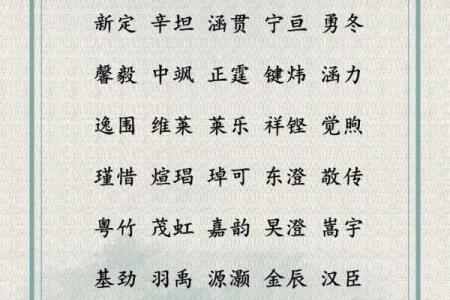 新定 辛坦 涵贯 宁亘 勇冬
馨毅 中飒 正霆 键炜 涵力
逸围 维莱 莱乐 祥铿 觉煦
瑾惜 煊琩 琸可 东澄 敬传
粤竹 茂虹 嘉韵 昊澄 嵩宇
基劲 羽禹 源灏 金辰 汉臣